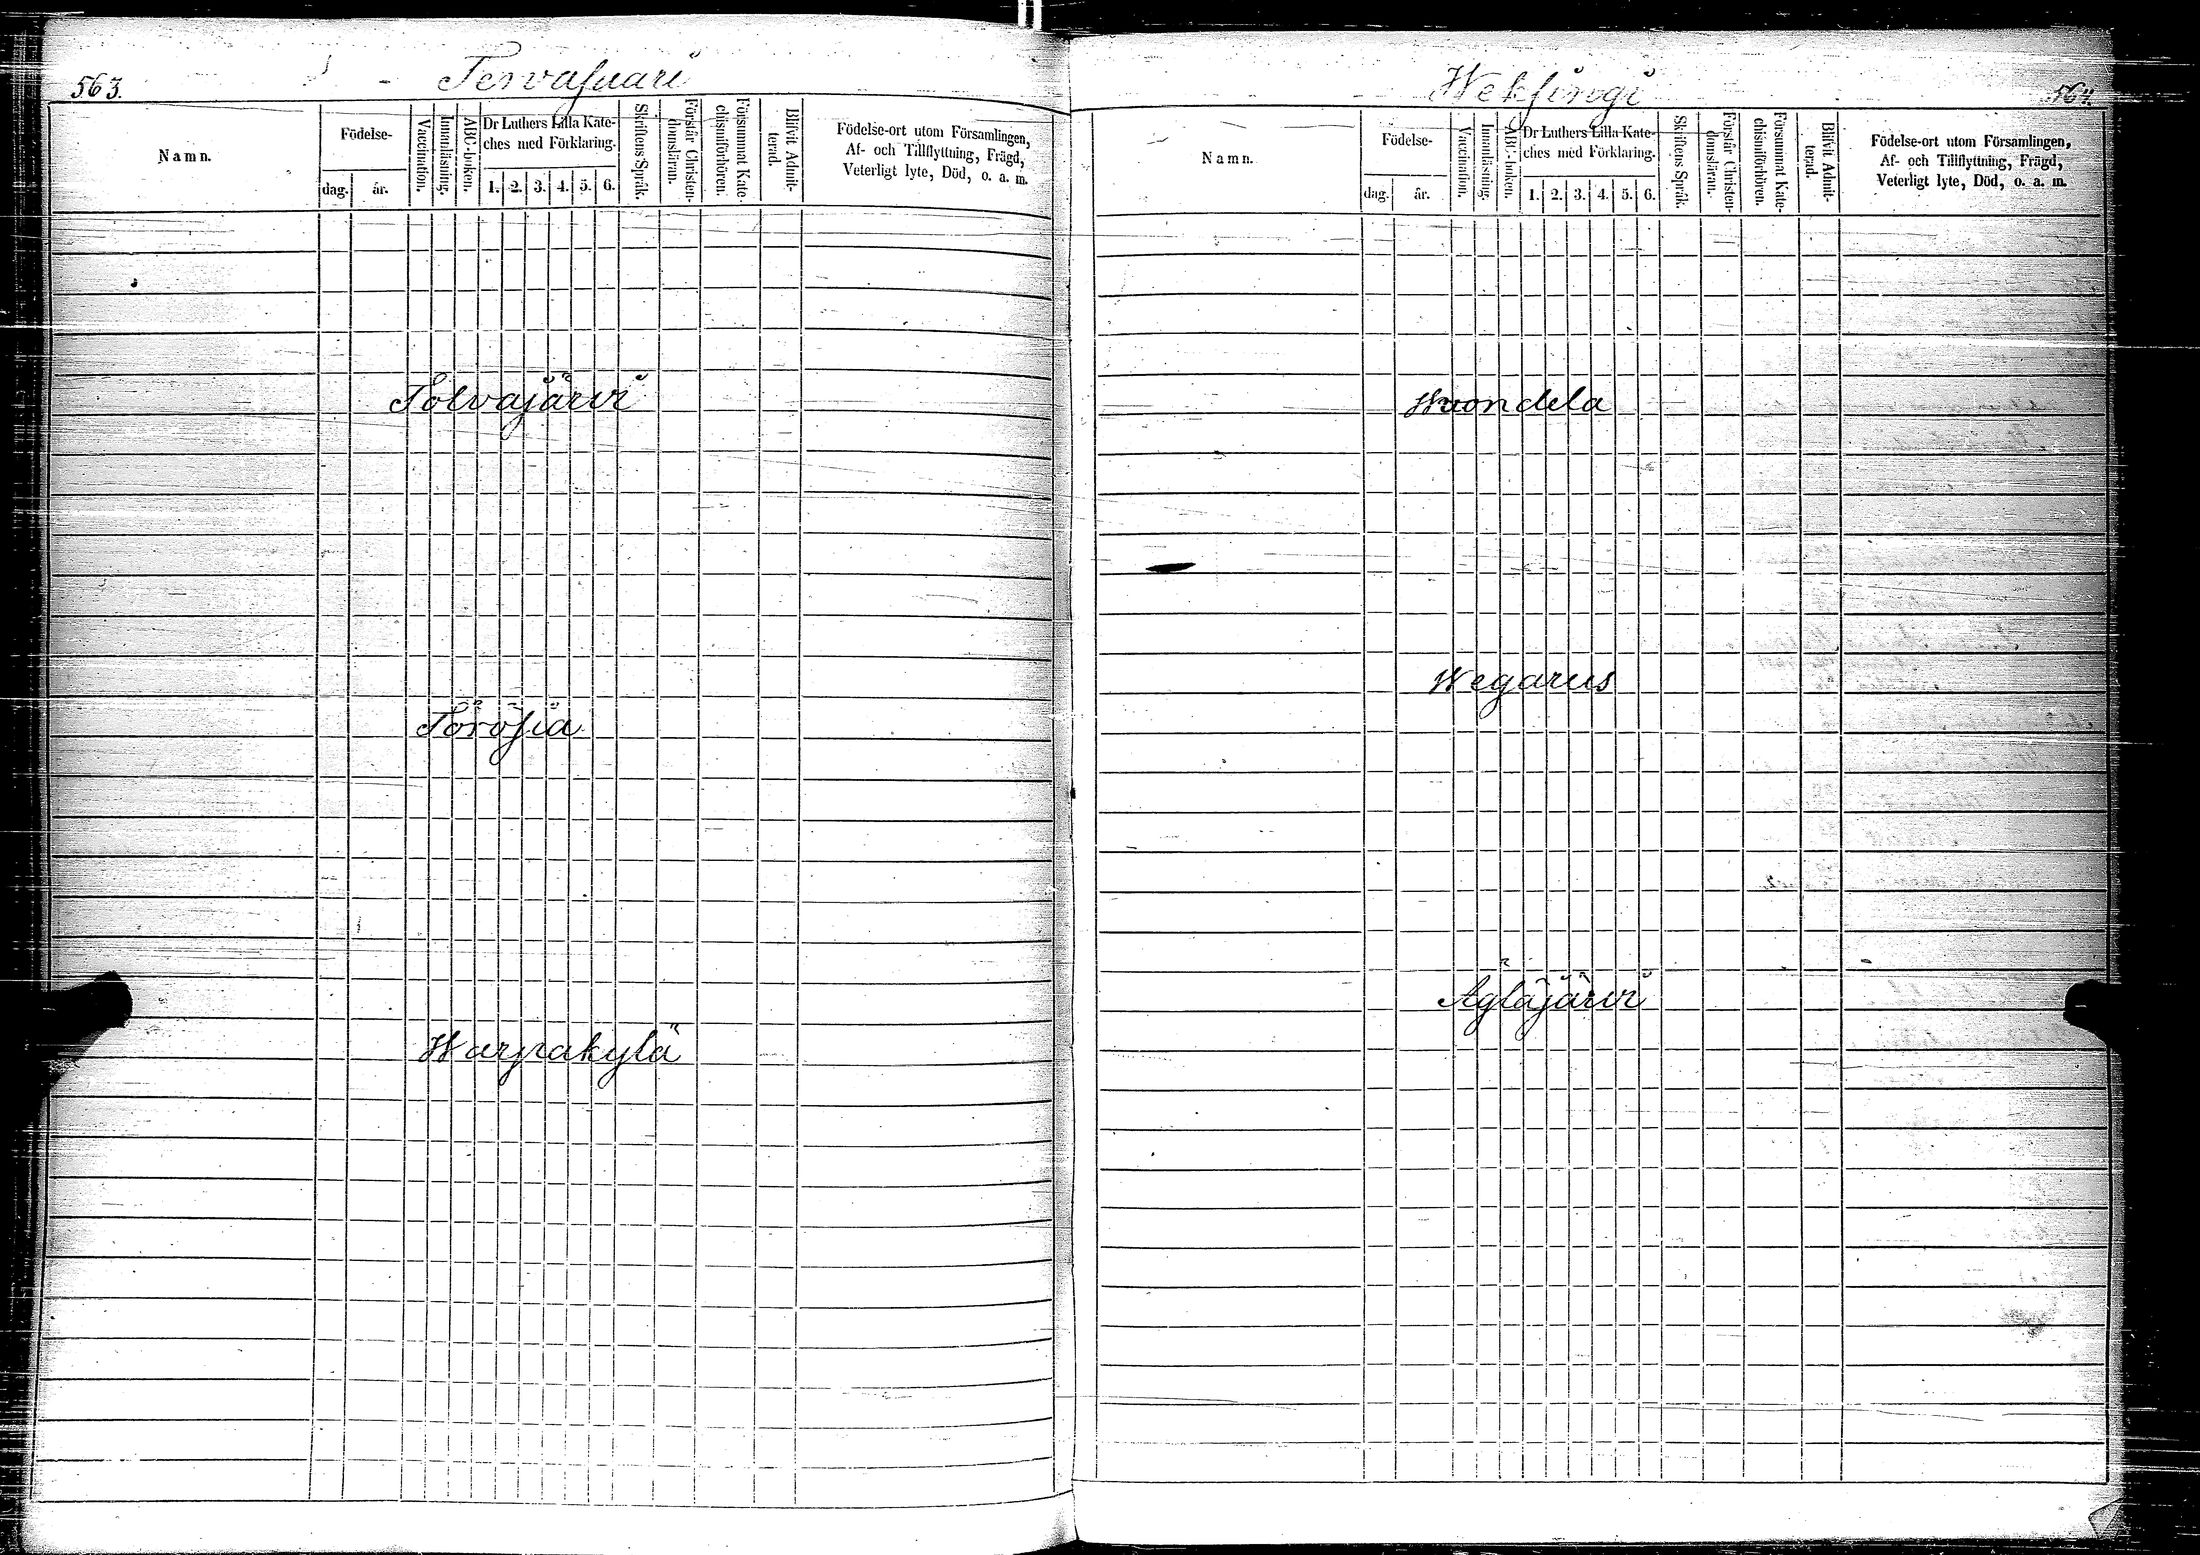 563.
Tervasuari
Namn.
Födelse-
dag.
år.
Vaccination.
Innanläsning.
ABC-boken.
Dr Luthers Lilla Kate-
ches med Förklaring.
1. 2. 3. 4. 5. 6.
Skriftens Språk.
Förstår Christen-
domsläran.
Försummat Kate-
chismiförhören.
Blifvit Admit-
terad.
Födelse-ort utom Församlingen,
Af- och Tillflyttning, Frägd,
Veterligt lyte, Död, o. a. m.
Tolvajärvi
Törösia
Warpakylä
Weksingi
564.
Namn.
Födelse-
dag.
år.
Vaccination.
Innanläsning.
ABC-boken.
Dr Luthers Lilla Kate-
ches med Förklaring.
1. 2. 3. 4. 5. 6.
Skriftens Språk.
Förstår Christen-
domsläran.
Försummat Kate-
chismiförhören.
Blifvit Admit-
terad.
Födelse-ort utom Församlingen,
Af- och Tillflyttning, Frägd,
Veterligt lyte, Död, o. a. m.
Wuondela
Wegarus
Ägläjärvi